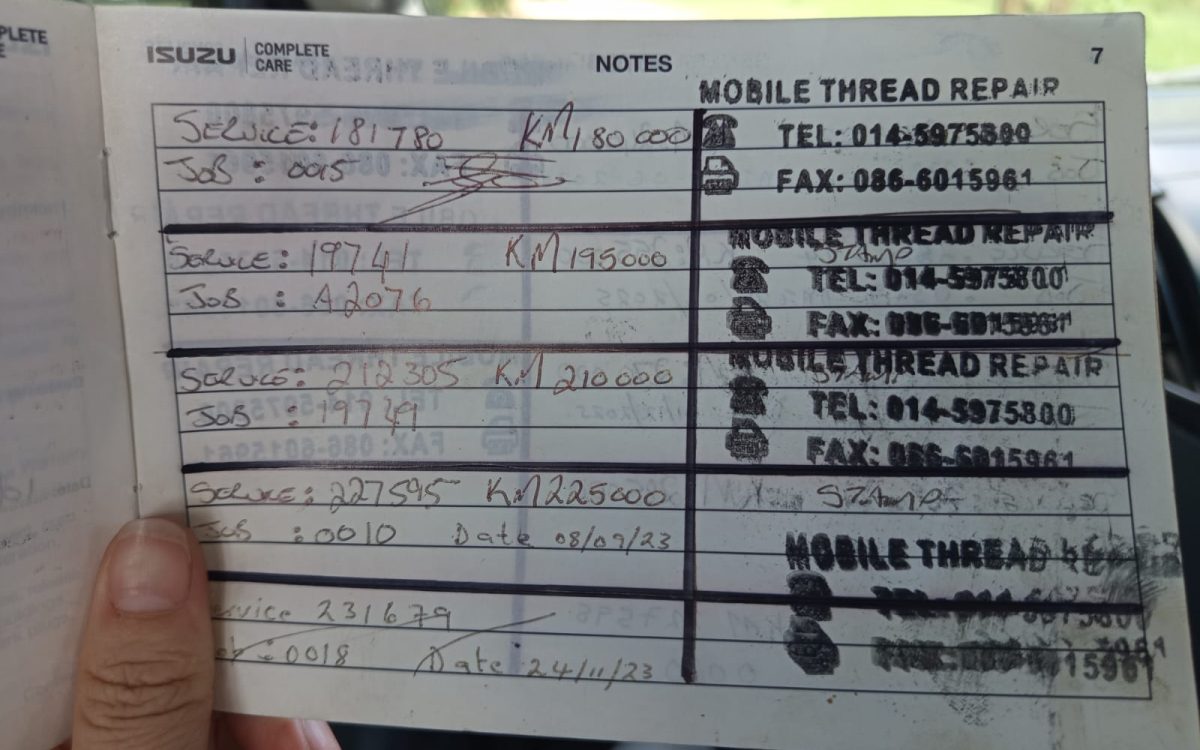 PLETE
E
ISUZU COMPLETE CARE NOTES 7
MOBILE THREAD REPAIR
SERVICE: 181780 KM 180 000 TEL: 014-5975800
JOB : 0015 FAX: 086-6015961
MOBILE THREAD REPAIR
SERVICE: 19741 KM 195000 STAMP
TEL: 014-5975800
JOB : A2076
FAX: 086-6015961
MOBILE THREAD REPAIR
SERVICE: 212305 KM 210000
JOB : 19749 TEL: 014-5975800
FAX: 086-6015961
SERVICE: 227595 KM 225000 STAMP
JOB : 0010 Date 08/09/23
MOBILE THREAD
Service 231679
: 0018 Date 24/11/23